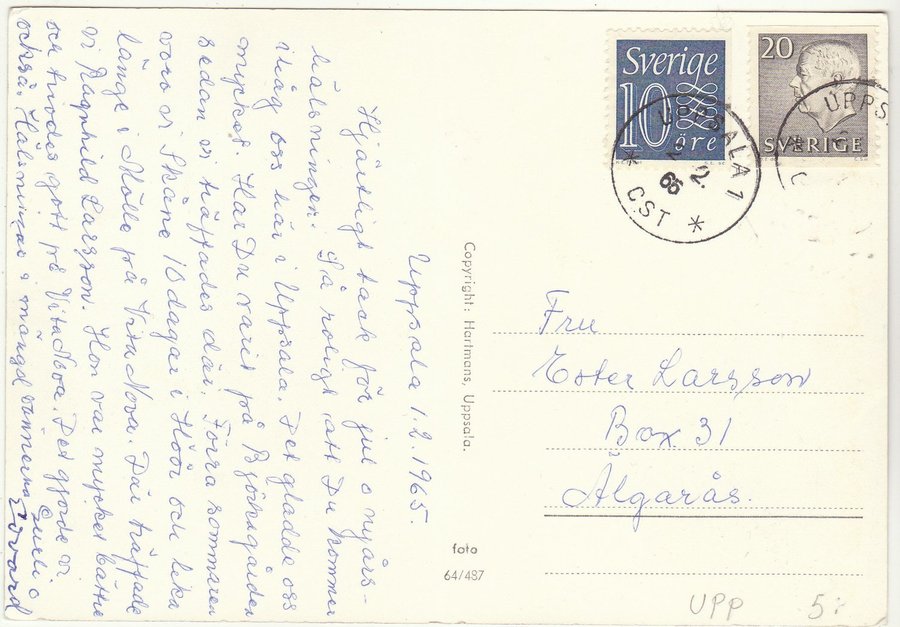 Uppsala 1.2.1965.
Hjärtligt tack för jul o nyårs-
hälsningen. Så roligt att Du kommer
ihåg oss här i Uppsala. Det gladde oss
mycket. Har Du varit på Björkagården
sedan vi träffades där. Förra sommaren
voro vi i Skåne 10 dagar i Höör och lika
länge i Mölle på Vita Nova. Där träffade
vi Ragnhild Larsson. Hon var mycket bättre
och trivdes gott på Vita Nova. Det gjorde vi
också. Hälsningar i mängd vännerna
Copyright: Hartmans, Uppsala.
foto
64/487
Sverige
10 öre
20
SVERIGE
UPPSALA 1
2.2.
65
* CST *
UPPS
C
Fru
Ester Larsson
Box 31
Älgarås.
UPP 5:-